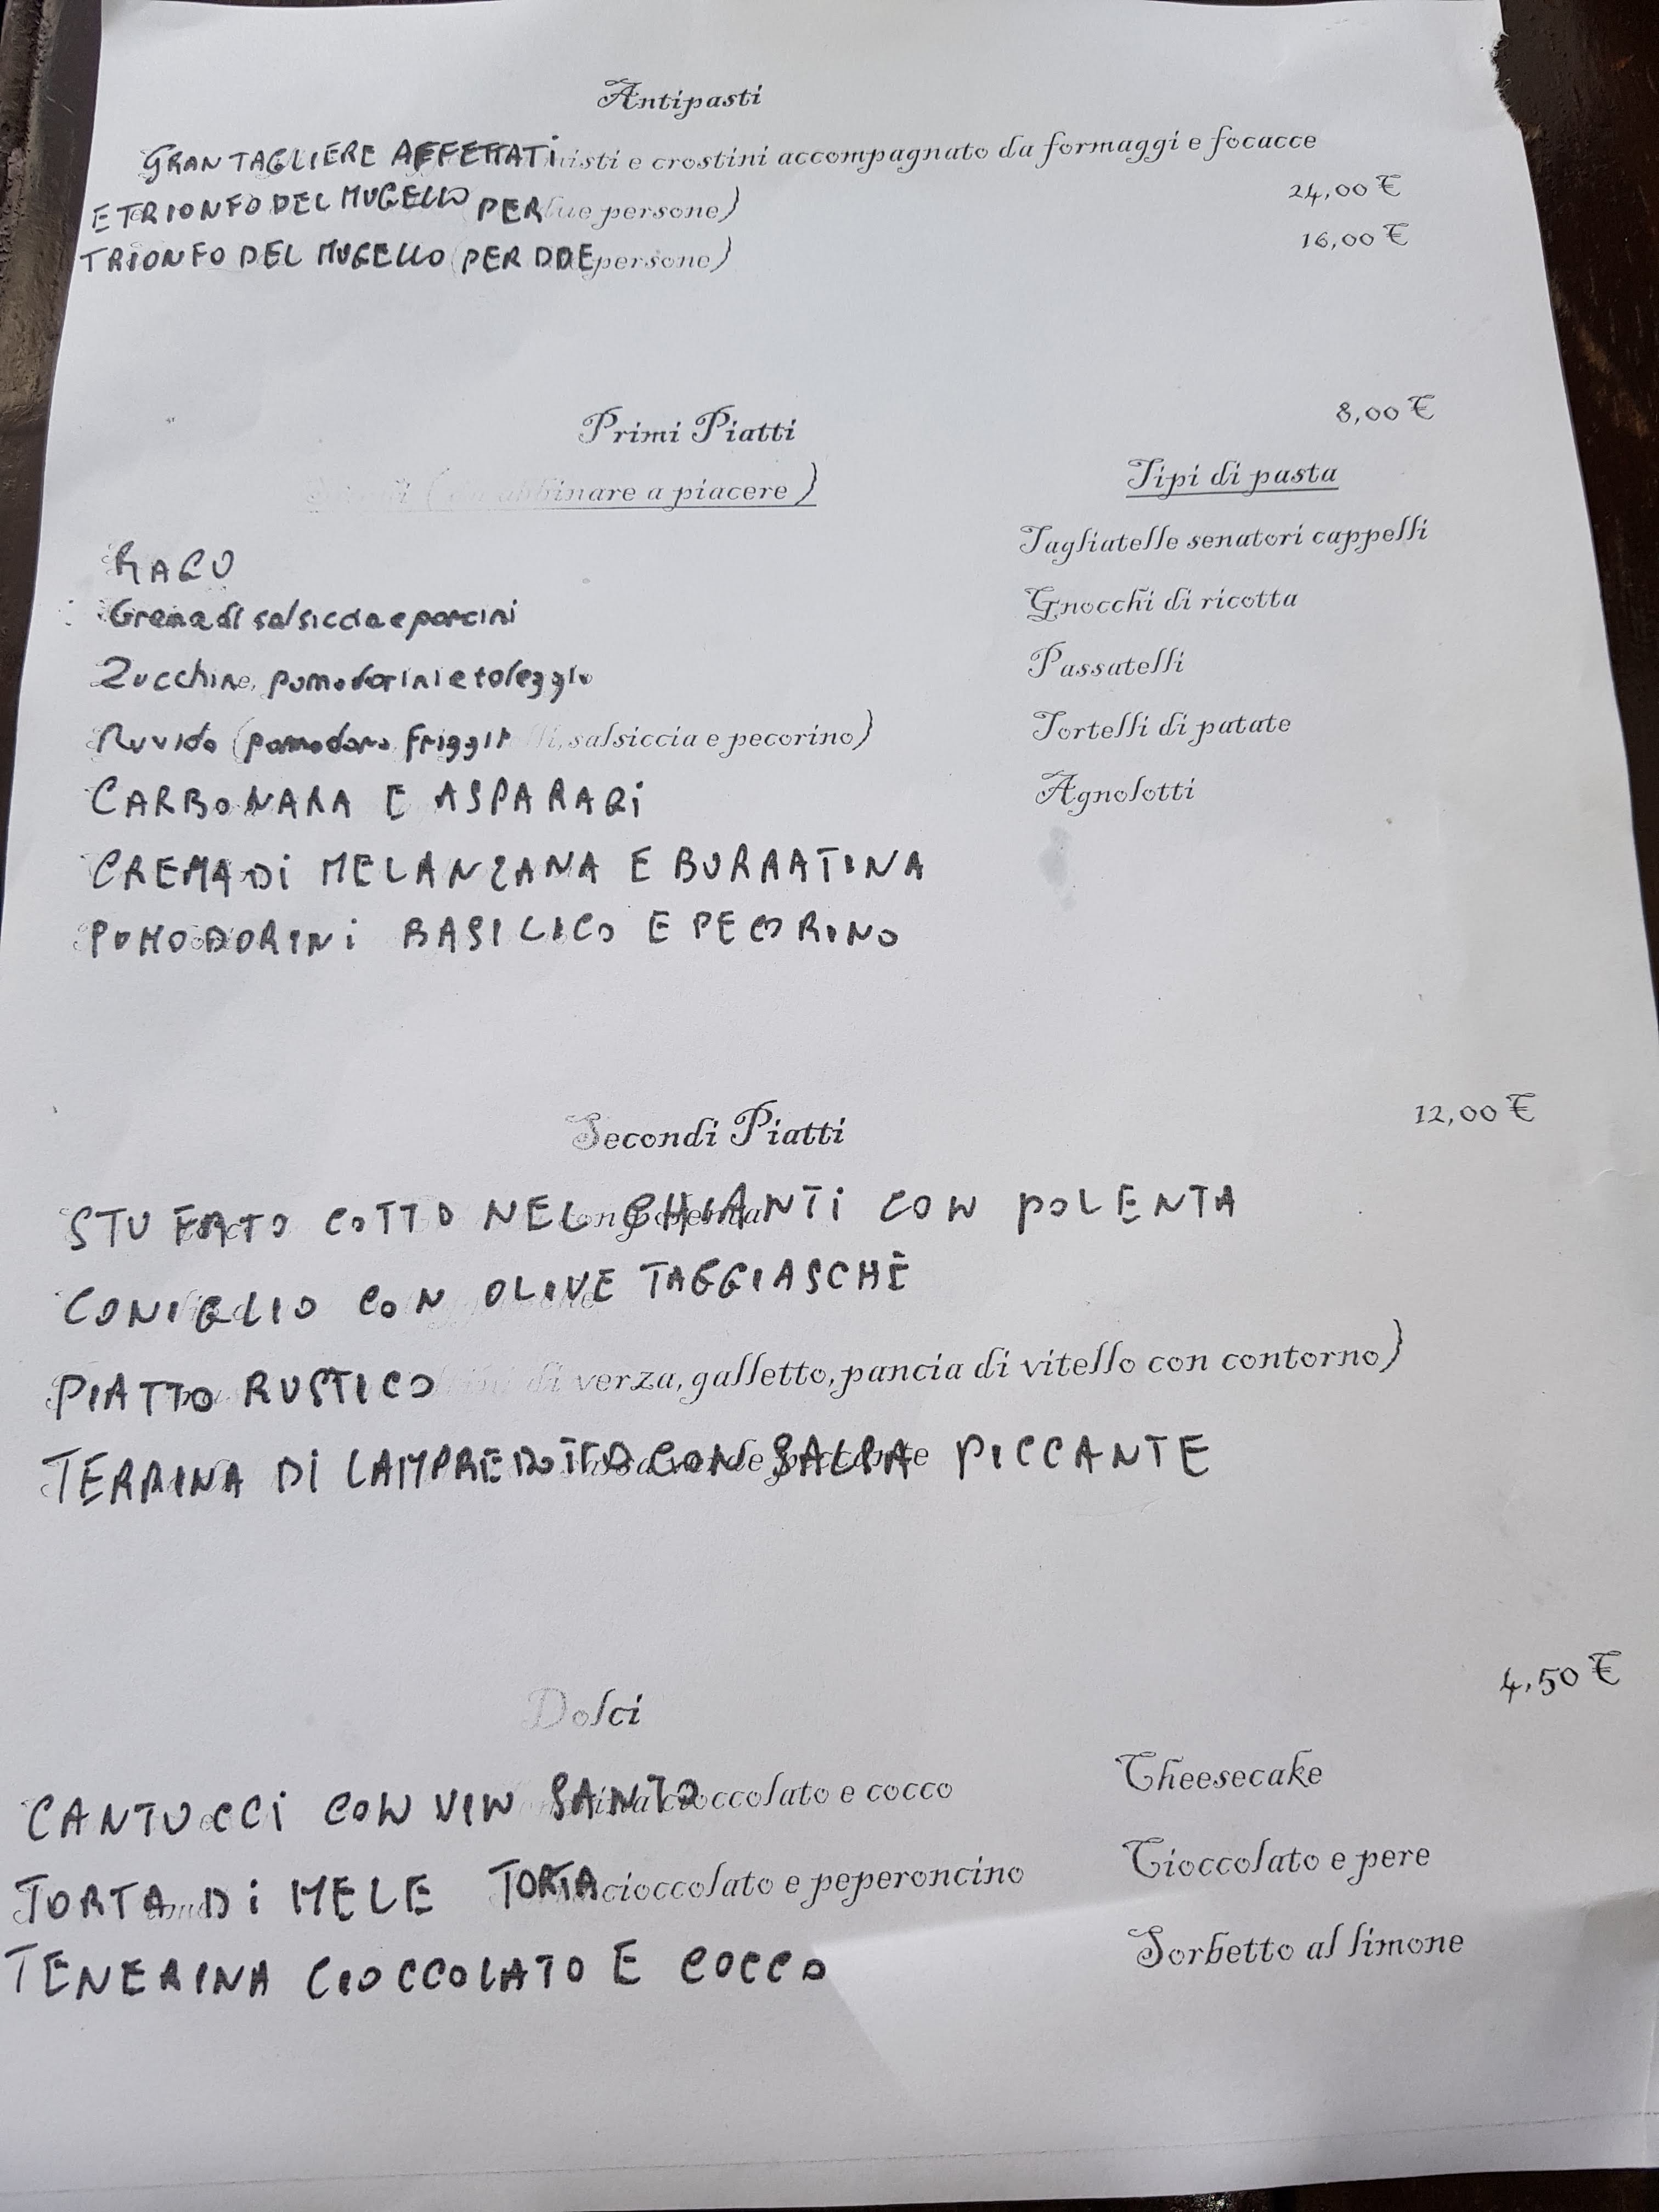 Antipasti
GRAN TAGLIERE AFFETTATI misti e crostini accompagnato da formaggi e focacce
E TRIONFO DEL MUGELLO PER due persone) 24,00 €
TRIONFO DEL MUGELLO (PER DUE persone) 16,00 €
Primi Piatti 8,00 €
(da abbinare a piacere) Tipi di pasta
RAGU Tagliatelle senatori cappelli
Crema di salsiccia e porcini Gnocchi di ricotta
Zucchine, pomodorini e taleggio Passatelli
Ruvido (pomodoro, friggitelli, salsiccia e pecorino) Tortelli di patate
CARBONARA E ASPARAGi Agnolotti
CREMA Di MELANZANA E BURRATINA
POMODORINi BASILICO E PECORINO
Secondi Piatti 12,00 €
STUFATO COTTO NEL CHIANTi CON POLENTA
CONIGLIO CON OLIVE TAGGIASCHE
PIATTO RUSTICO di verza, galletto, pancia di vitello con contorno)
TERRINA Di LAMPREDOTTO CON SALSA PICCANTE
Dolci 4,50 €
CANTUCCi CON VIN SANTO cioccolato e cocco Cheesecake
TORTA Di MELE TORTA cioccolato e peperoncino Cioccolato e pere
TENERINA CIOCCOLATO E COCCO Sorbetto al limone